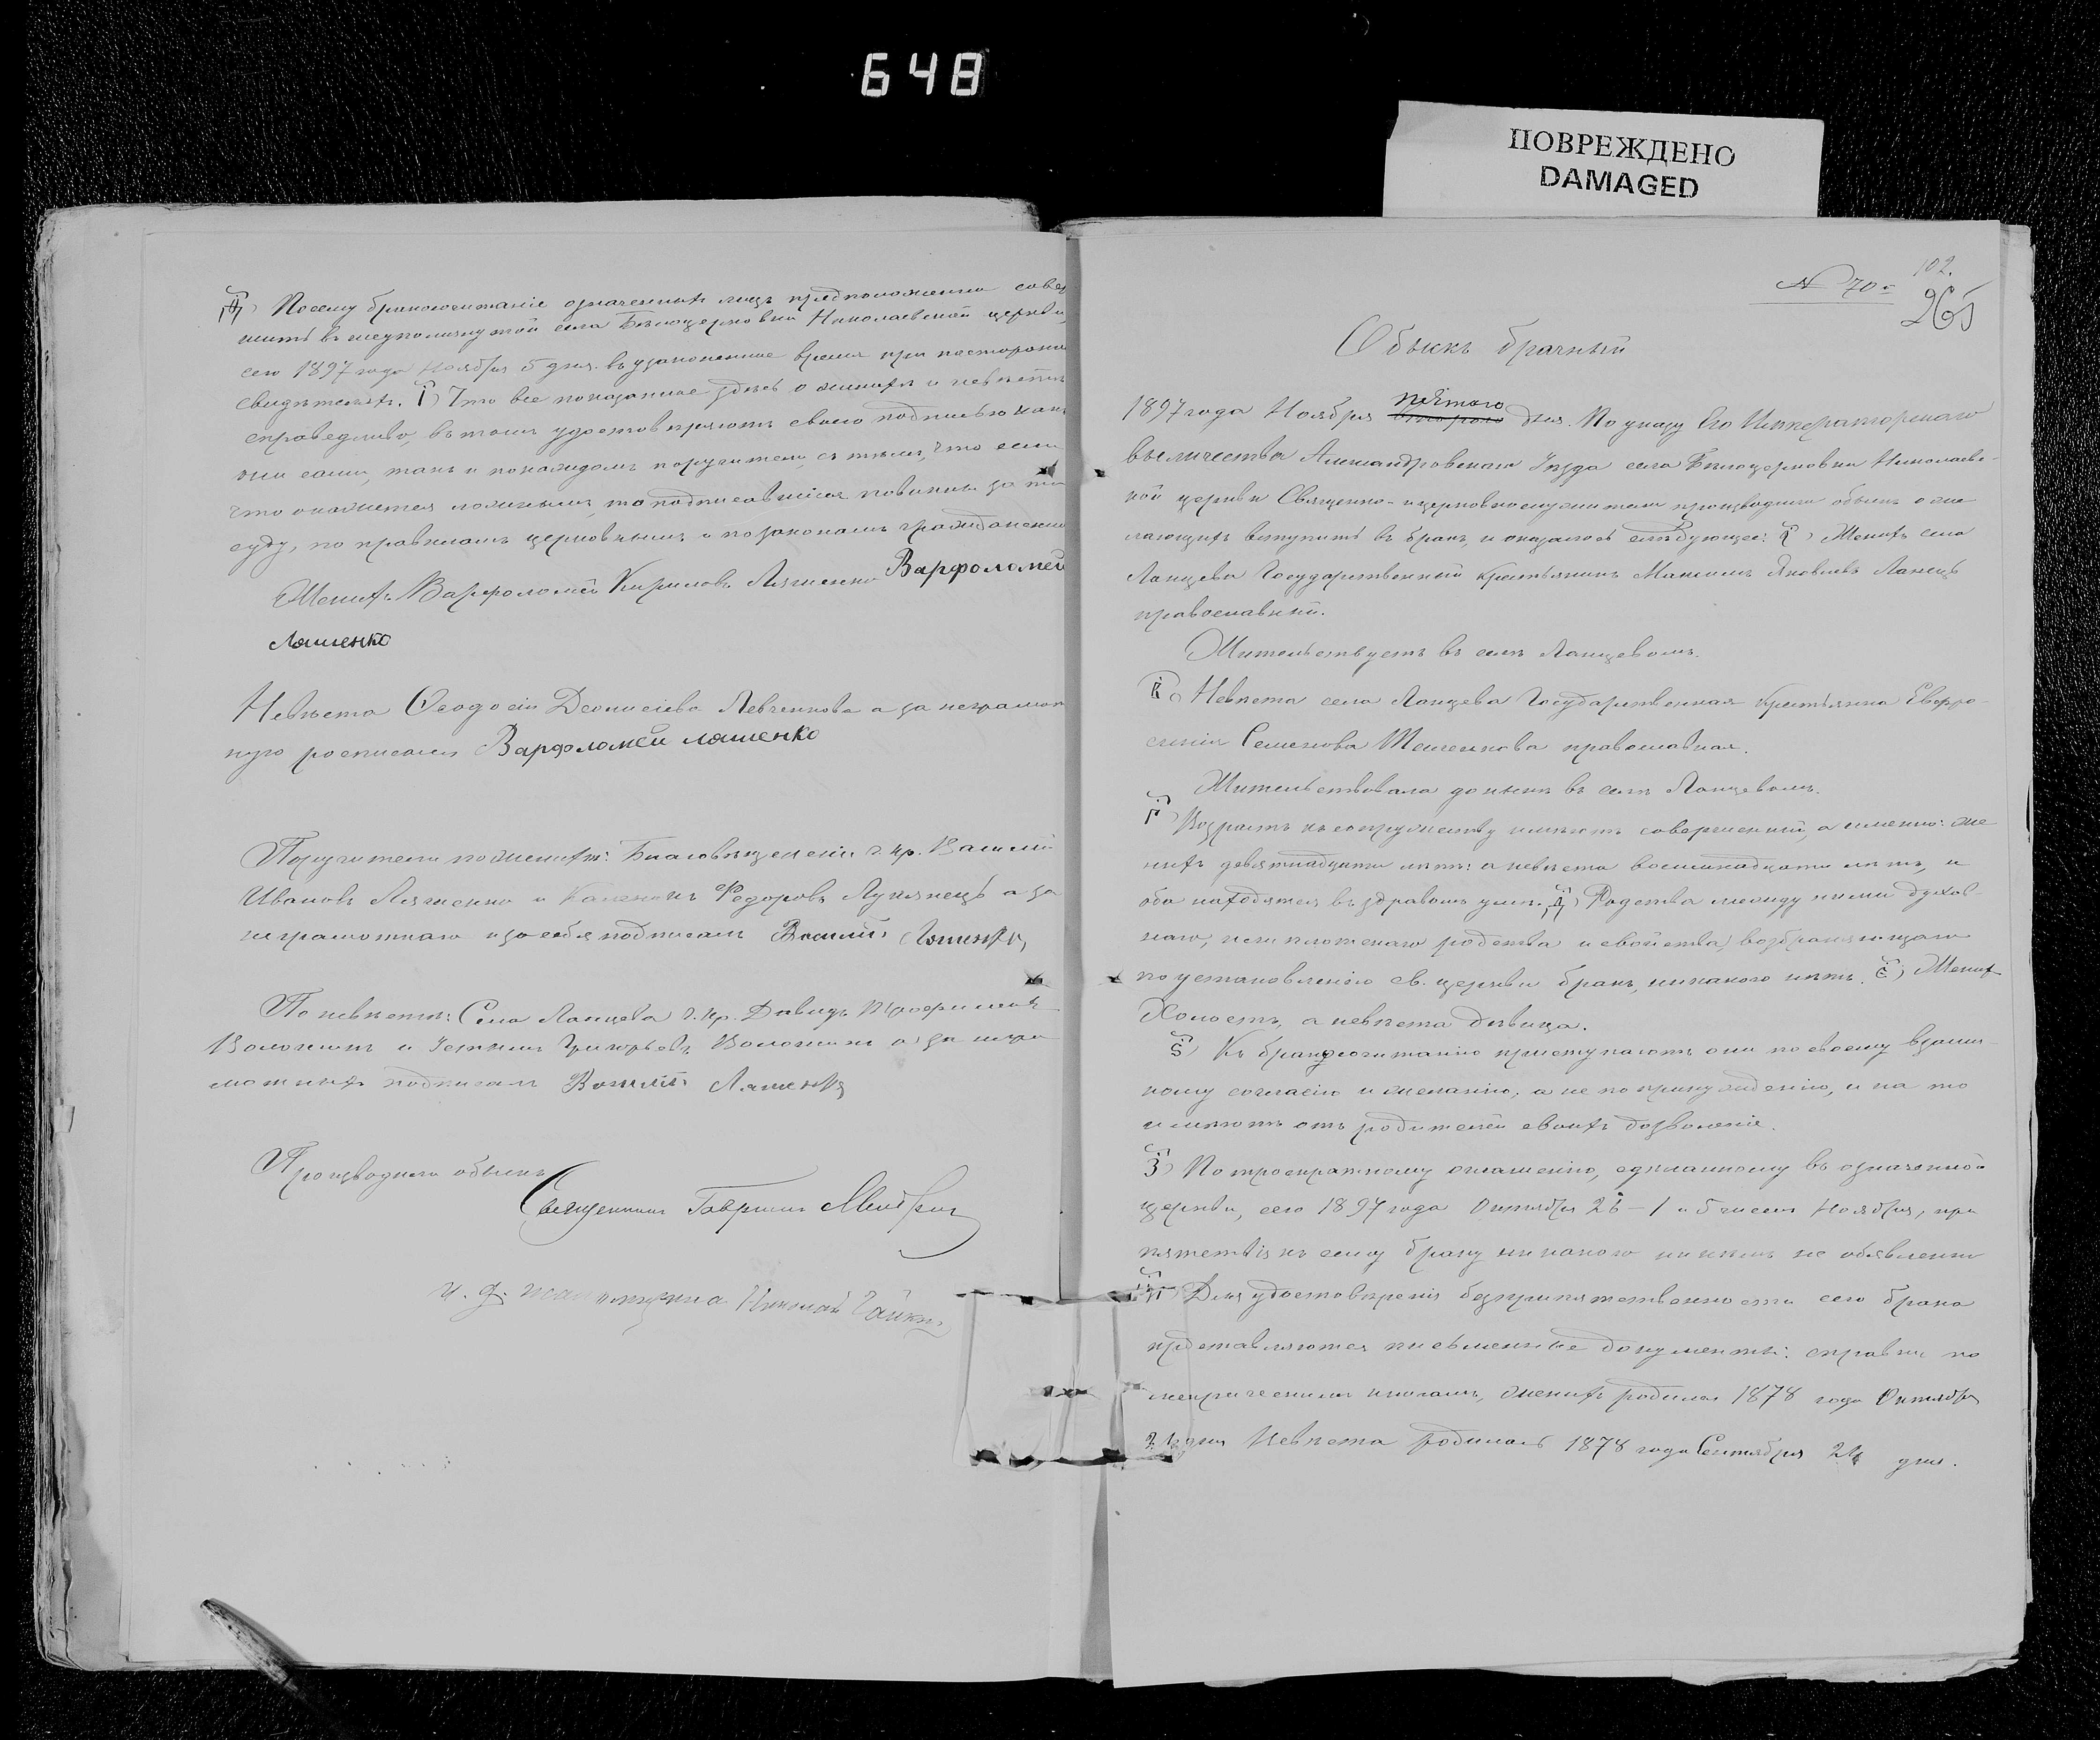 648
ПОВРЕЖДЕНО
DAMAGED
Ѳ) Посему бракосочитаніе означенныхъ лицъ предположено совер
шить въ вышеупомянутой села Бѣлоцерковки Николаевской церкви,
сего 1897 года Ноября 5 дня въ узаконенное время при посторонн
свидѣтеляхъ. І) Что все показанное здѣсь о женихѣ и невѣстѣ
справедливо, въ томъ удостовѣряютъ своею подписью какъ
они сами, такъ и по каждомъ поручители, съ тѣмъ, что если
что окажется ложнымъ, то подписавшіеся повинны за то
суду, по правиламъ церковнымъ и по законамъ гражданским
Женихъ Варфоломей Кириловъ Ляшенко Варфоломей
Ляшенко
Невѣста Ѳеодосія Деонисіева Левченкова а за неграмот
ную росписался Варфоломей ляшенко
Поручители по женихѣ: Благовѣщенскія г. кр. Василій
Ивановъ Ляшенко и Федоровъ Лукянецъ а за
неграмотнаго и за себя подписалъ Василій Ляшенко
По невѣстѣ: Села Ланцева г. кр. Давидъ
и Устинъ Григорьевъ а за негра
мотныхъ подписалъ Василій Ляшенко
Производили обыскъ
Священникъ Гавріилъ
и. д. псаломщика Николай
102.
№ 70й
265
Обыскъ брачный
пятого
1897 года Ноября второго дня. По указу Его Императорскаго
величества Александровскаго Уѣзда села Бѣлоцерковки Николаевс-
кой церкви Священно-церковнослужители производили обыскъ о же
лающихъ вступить въ бракъ, и оказалось слѣдующее: а) Женихъ села
Ланцева Государственный крестьянинъ Максимъ Яковлевъ Ланецъ
православный.
Жительствуетъ въ селѣ Ланцевомъ.
в) Невѣста села Ланцева Государственная Крестьянка Евфро-
синія Семенова православная.
Жительствовала донынѣ въ селѣ Ланцевомъ.
г) Возрастъ къ супружеству имѣютъ совершенный, а именно: же
нихъ девятнадцати лѣтъ: а невѣста восемнадцати лѣтъ, и
оба находятся въ здравомъ умѣ. д) Родства между ними духов-
наго, или плотскаго родства и свойства, возбраняющаго
по установленію св. церкви бракъ, никакого нѣтъ. е) Женихъ
Холостъ, а невѣста дѣвица.
ѕ) Къ бракосочитанію приступаютъ они по своему взаим-
ному согласію и желанію, а не по принужденію, и на то
имѣютъ отъ родителей своихъ дозволеніе.
з) По троекратному оглашенію, сдѣланному въ означенной
церкви, сего 1897 года Октября 26 - 1 и 5 чиселъ Ноября, пре
пятствія къ сему браку никакого никѣмъ не объявлено
и) Для удостовѣренія безпрепятственности сего брака
представляются письменные документы: справки по
метрическимъ книгамъ, женихъ родился 1878 года Октября
дня Невѣста родилась 1878 года Сентября 24 дня.